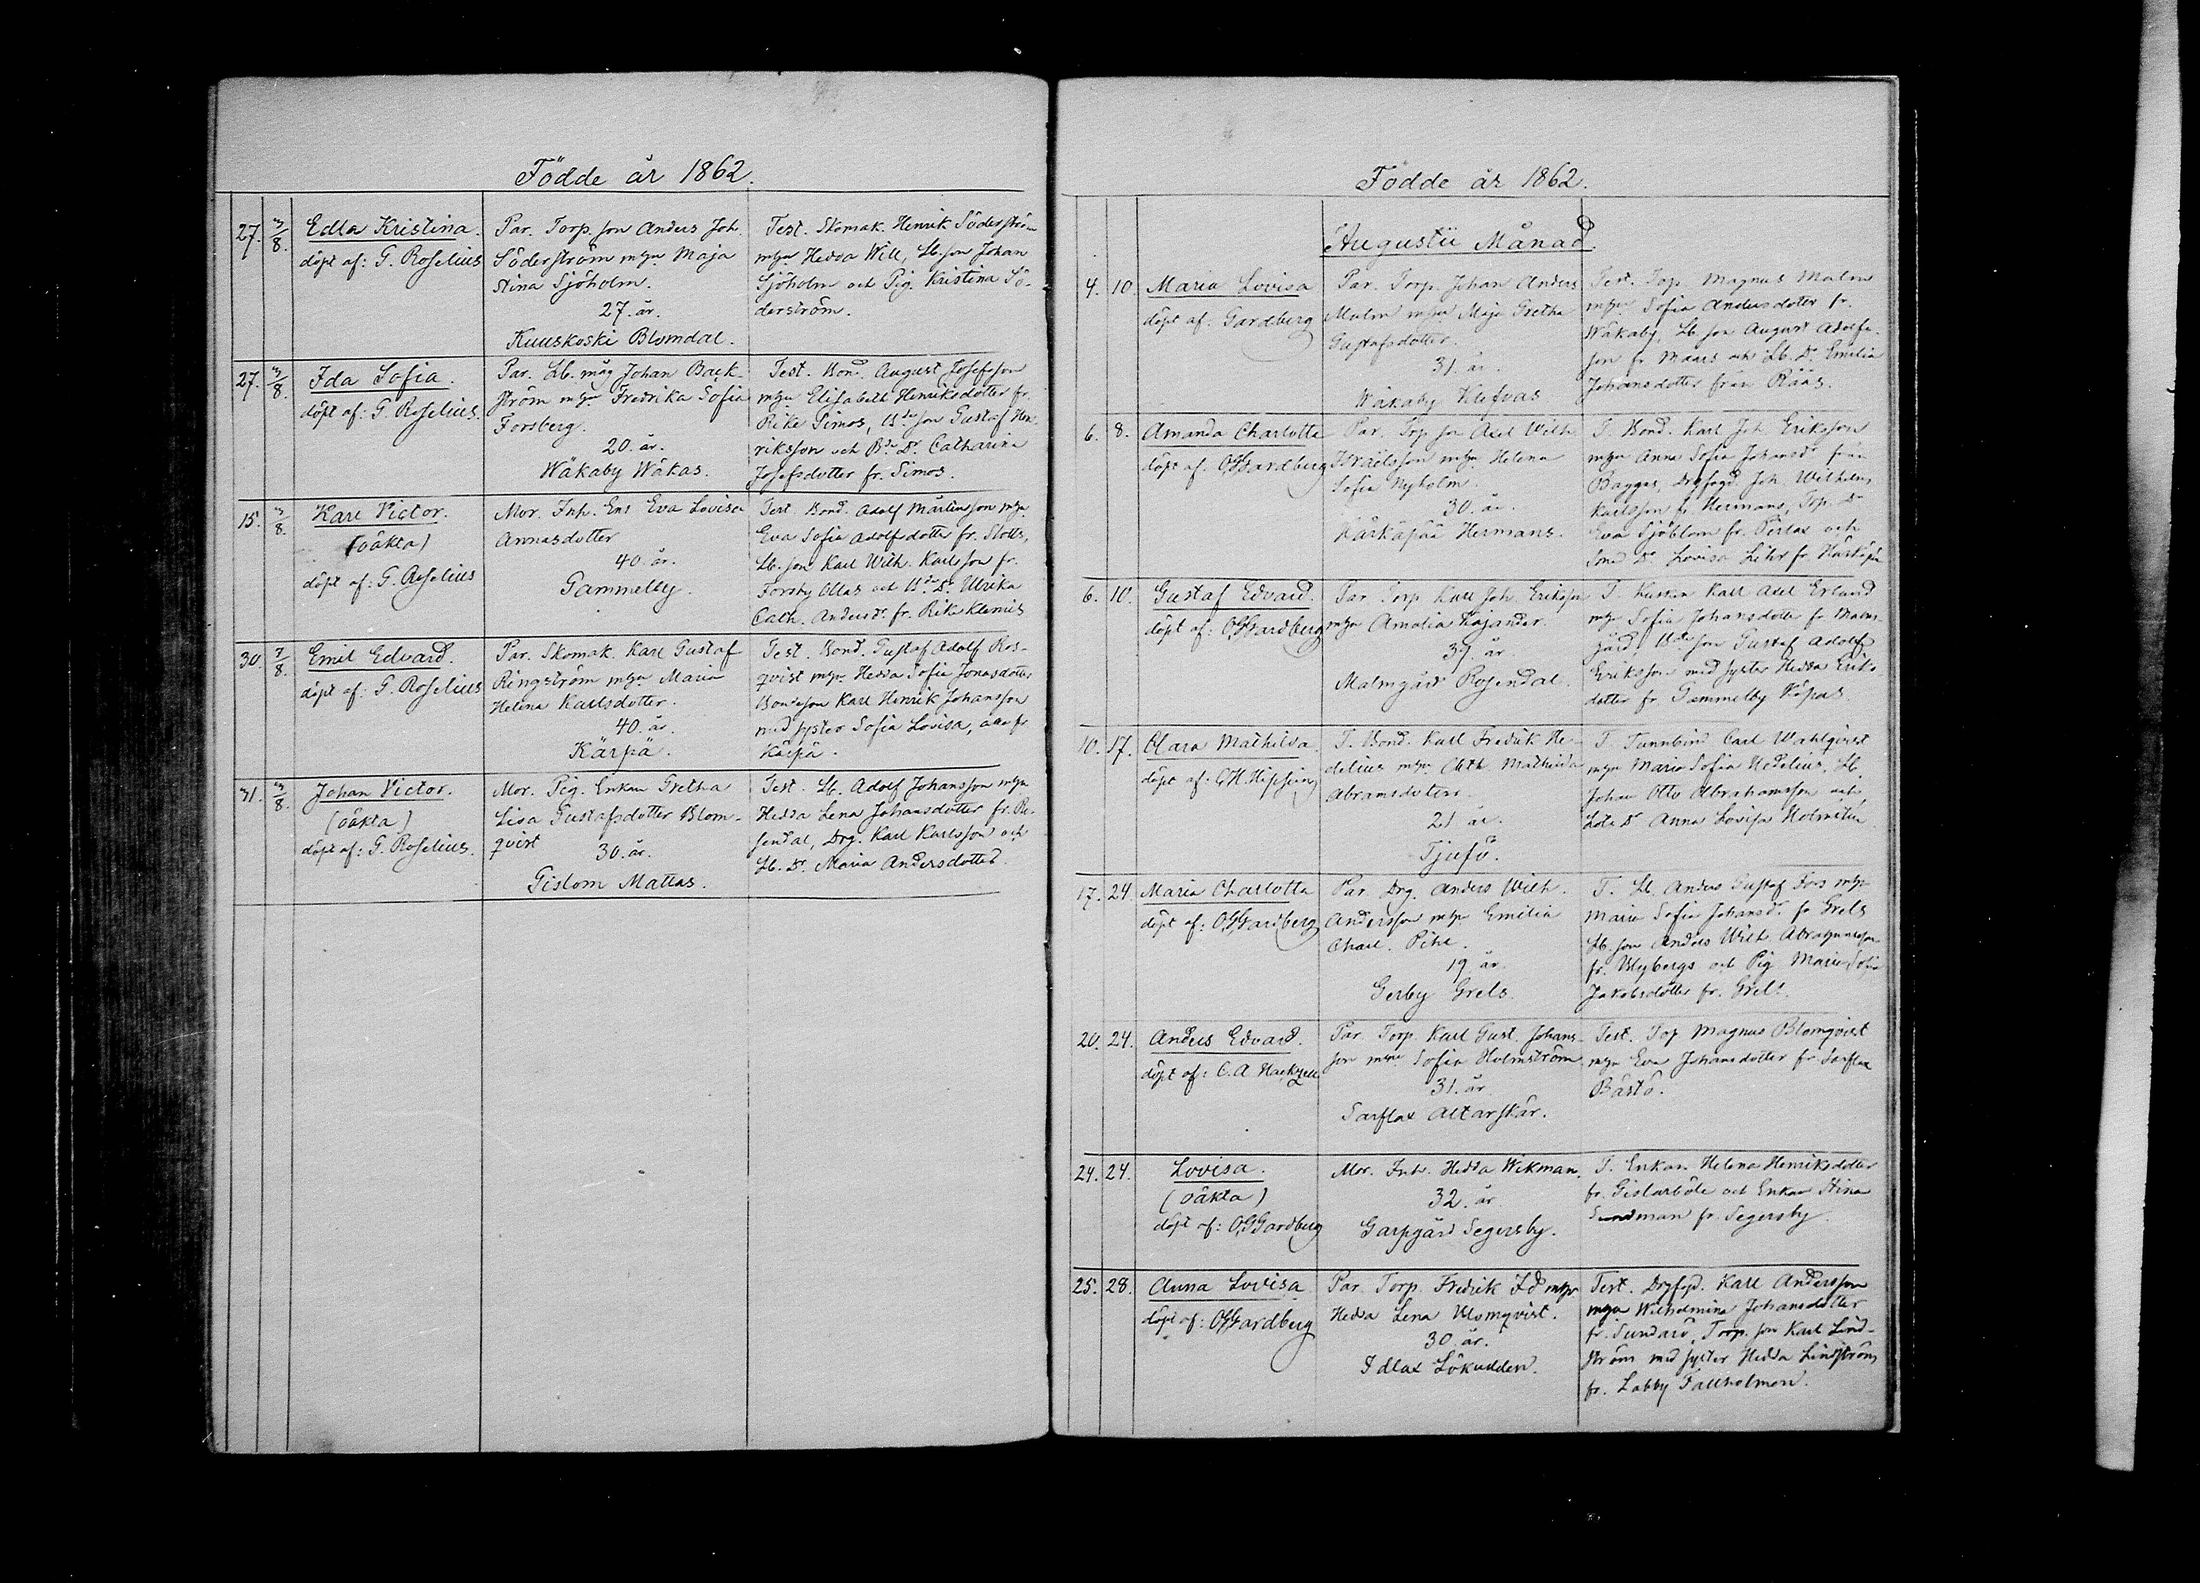 Födde år 1862.
27. 3/8. Edla Kristina.
döpt af: G. Roselius
Par. Torp. son Anders Joh.
Söderström mhu Maja
Stina Sjöholm.
27. år.
Kuuskoski Blomdal.
Test. Skomak. Henrik Söderström
mhu Hedda Will, Lb. son Johan
Sjöholm och Pig. Kristina Sö-
derström.
27. 3/8. Ida Sofia.
döpt af: G. Roselius.
Par. Lb. måg Johan Back-
ström mhu Fredrika Sofia
Forsberg.
20. år.
Wåkaby Wåkas.
Test. Bond. August Josefsson
mhu Elisabeth Henriksdotter fr.
Rike Simos, Bde son Gustaf Hen-
riksson och Bd. Dr. Catharina
Josefsdotter fr. Simos.
15. 3/8. Karl Victor.
(oäkta)
döpt af: G. Roselius
Mor. Inh. Enk Eva Lovisa
Annasdotter
40. år.
Gammelby.
Test. Bond. Adolf Mårtensson mhu
Eva Sofia Adolfsdotter fr. Slotts,
Lb. son Karl Wilh. Karlsson fr.
Forsby Ollas och Bde Dr. Ulrika
Cath. Andersdr. fr. Rike Klemis
30 3/8. Emil Edvard.
döpt af: G. Roselius
Par. Skomak. Karl Gustaf
Ringström mhu Maria
Helena Karlsdotter.
40. år.
Kärpä.
Test. Bond. Gustaf Adolf Ros-
qvist mhu Hedda Sofia Jonasdotter
Bondeson Karl Henrik Johansson
med syster Sofia Lovisa, alla fr
Kärpä.
31. 3/8. Johan Victor.
(oäkta)
döpt af: G. Roselius.
Mor. Pig. Enkan Gretha
Lisa Gustafsdotter Blom-
qvist 30. år.
Gislom Mattas.
Test. Lb. Adolf Johansson mhu
Hedda Lena Johansdotter fr. Ro-
sendal, Drg. Karl Karlsson och
Lb. Dr. Maria Andersdotter.
Födde år 1862.
Augustii Månad.
4. 10. Maria Lovisa
döpt af: Gardberg
Par. Torp. Johan Anders
Malm mhu Maja Gretha
Gustafsdotter.
31. år.
Wåkaby Klefvas
Test. Torp Magnus Malm
mhu Sofia Andersdotter fr.
Wåkaby, Lb. son August Adolfs-
son fr. Maars och Lb. Dr. Emilia
Johansdotter från Rääs.
6. 8. Amanda Charlotta
döpt af. OGGardberg
Par. Torp son Axel Wilh
Israelsson mhu Helena
Sofia Nyholm.
30. år.
Härkäpää Hermans.
T. Bond. Karl Joh Eriksson
mhu Anna Sofia Johansdr från
Baggas, Drgfogd Joh Wilhelm
Karlsson fr. Hermans, Torp. Dr
Eva Sjöblom fr. Pertas och
Smed Dr. Lovisa Liter fr. Härkäpää
6. 10. Gustaf Edvard.
döpt af: OGGardberg
Par Torp Karl Joh. Eriksson
mhu Amalia Kajander.
39. år.
Malmgård Rosendal.
T. Kusken Karl Axel Erlund
mhu Sofia Johansdotter fr Malm-
gård, Bde son Gustaf Adolf
Eriksson med syster Hedda Eriks-
dotter fr Gammelby Käpas
10. 17. Clara Mathilda.
döpt af: C.H. Hipping
T. Bond. Karl Fredrik He-
delius mhu Chth Mathilda
Abramsdotter.
21 år.
Tjufö.
T. Tunnbind Carl Wahlqvist
mhu Maria Sofia Hedelius, Lb.
Johan Otto Abrahamsson och
Lots Dr Anna Lovisa Holmström
17. 24 Maria Charlotta
döpt af: OGGardberg
Par. Drg. Anders Wilh.
Andersson mhu Emilia
Charl. Pihl.
19. år.
Gerby Grels.
T. Lb. Anders Gustaf Fors mhu
Maria Sofia Johansdr. fr Grels
Lb. son Anders Wilh Abrahamsson
fr. Blybergs och Pig Maria Sofia
Jakobsdotter fr. Grels.
20. 24. Anders Edvard.
döpt af: C. A. Hackzell
Par Torp. Karl Gust. Johans-
son mhu Sofia Holmström
31. år.
Sarflax Altarskär.
Test. Torp Magnus Blomqvist
mhu Eva Johansdotter fr Sarflax
Båstö.
24. 24. Lovisa.
(oäkta)
döpt af: OGGardberg
Mor. Inh. Hedda Wikman.
32. år
Garpgård Segersby.
T. Enkan Helena Henriksdotter
fr. Gislarböle och Enkan Stina
Sundman fr. Segersby.
25. 28. Anna Lovisa
döpt af: OGGardberg
Par. Torp. Fredrik Id mhu
Hedda Lena Blomqvist.
30 år.
Idlax Lökudden.
Test. Drgfogd. Karl Andersson
mhu Wilhelmina Johansdotter
fr. Sundarö, Torp. son Karl Lind-
ström med syster Hedda Lindström
fr. Labby Tallholmen.